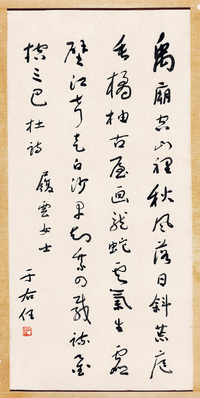 禹廟空山裡秋風落日斜荒庭
垂橘柚古屋画龍蛇雲氣生虛
壁江聲走白沙早知乘四載疏鑿
控三巴 杜詩 雲女士
于右任